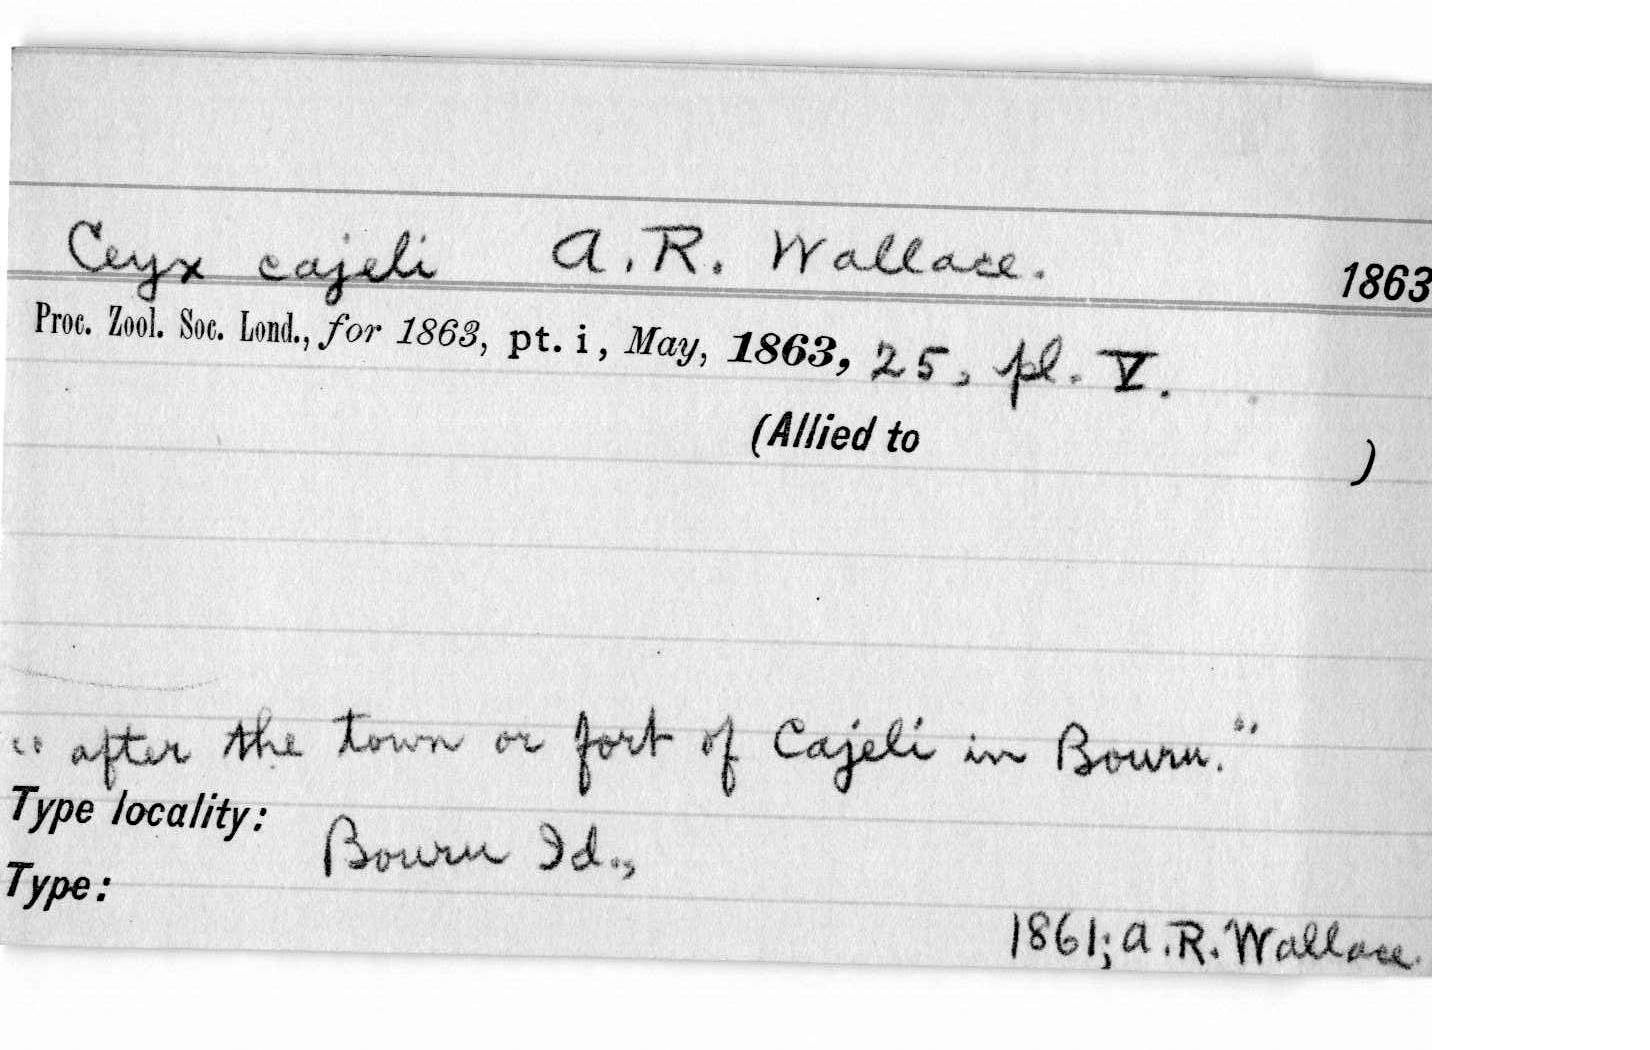 Ceyx cajeli A. R. Wallace. 1863
Proc. Zool. Soc. Lond., for 1863, pt. i, May, 1863, 25, pl. V.
(Allied to )
"after the town or fort of Cajeli in Bouru."
Type locality: Bouru Id.,
Type:
1861; A. R. Wallace.